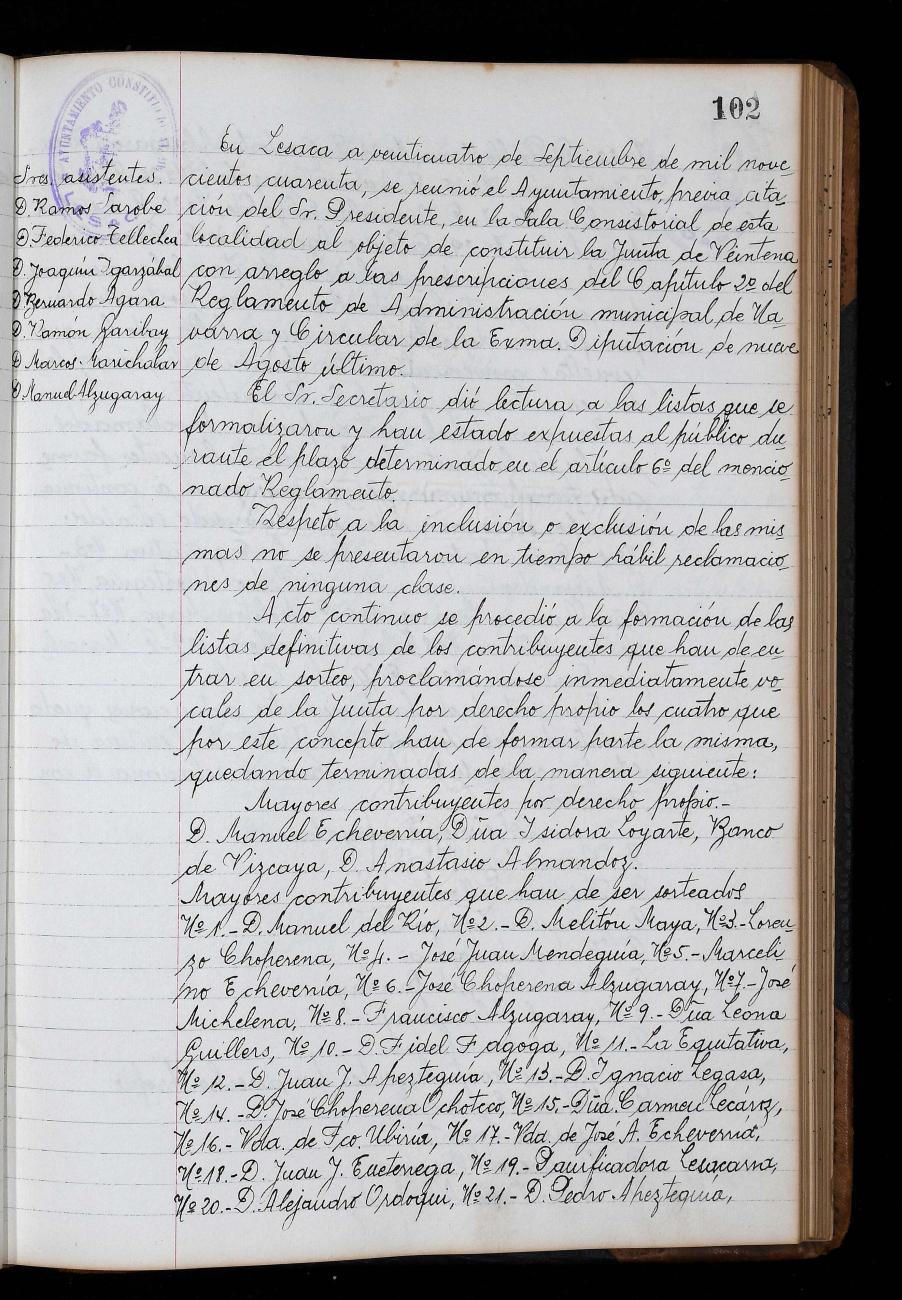 102
AYUNTAMIENTO CONSTITUCIONAL
Sres. asistentes.
D. Ramos Sarobe
D. Federico Tellechea
D. Joaquín Igarzábal
D. Bernardo Agara
D. Ramón Garibay
D. Marcos Marichalar
D. Manuel Alzugaray
En Lesaca a veinticuatro de Septiembre de mil nove-
cientos cuarenta, se reunió el Ayuntamiento, previa cita-
ción del Sr. Presidente, en la Sala Consistorial de esta
localidad al objeto de constituir la Junta de Veintena
con arreglo a las prescripciones del Capítulo 2º del
Reglamento de Administración municipal de Na-
varra y Circular de la Exma. Diputacion de nueve
de Agosto último.
El Sr. Secretario dió lectura a las listas que se
formalizaron y han estado expuestas al público du-
rante el plazo determinado en el artículo 6º del mencio-
nado Reglamento.
Respeto a la inclusión o exclusión de las mis-
mas no se presentaron en tiempo hábil reclamacio-
nes de ninguna clase.
Acto continuo se procedió a la formación de las
listas definitivas de los contribuyentes que han de en-
trar en sorteo, proclamándose inmediatamente vo-
cales de la Junta por derecho propio los cuatro que
por este concepto han de formar parte la misma,
quedando terminadas de la manera siguiente:
Mayores contribuyentes por derecho propio.-
D. Manuel Echeverría, Dña Isidora Loyarte, Banco
de Vizcaya, D. Anastasio Almandoz.
Mayores contribuyentes que han de ser sorteados
Nº 1.- D. Manuel del Río, Nº 2.- D. Melitón Maya, Nº 3.- Loren-
zo Choperena, Nº 4.- José Juan Mendeguía, Nº 5.- Marceli-
no Echeverria, Nº 6.- José Choperena Alzugaray, Nº 7.- José
Michelena, Nº 8.- Francisco Alzugaray, Nº 9.- Dña Leona
Guillers, Nº 10.- D. Fidel Fagoga, Nº 11.- La Equitativa,
Nº 12.- D. Juan J. Apezteguía, Nº 13.- D. Ignacio Legasa,
Nº 14.- D. José Choperena Ochoteco, Nº 15.- Dña. Carmen Lecároz,
Nº 16.- Vda. de Fco. Ubiría, Nº 17.- Vda. de José A. Echeverria,
Nº 18.- D. Juan J. Eneterrega, Nº 19.- Panificadora Lesacarra,
Nº 20.- D. Alejandro Ordoqui, Nº 21.- D. Pedro Apezteguía,